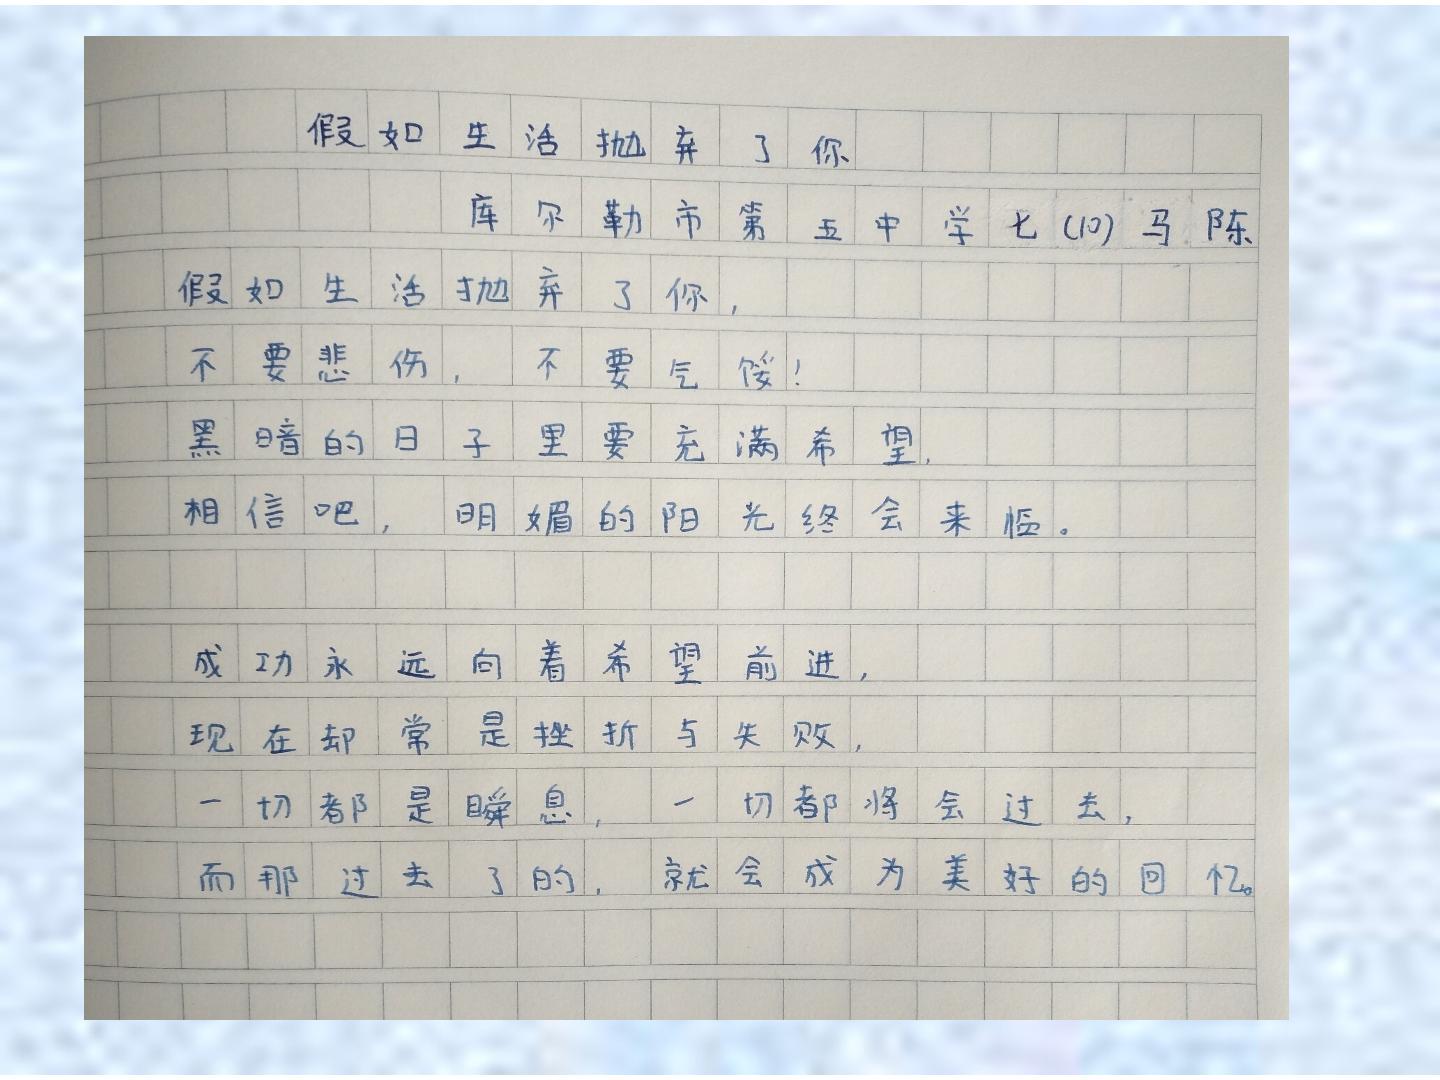 假如生活抛弃了你
库尔勒市第五中学七(10)马陈
假如生活抛弃了你,
不要悲伤,不要气馁!
黑暗的日子里要充满希望,
相信吧,明媚的阳光终会来临。
成功永远向着希望前进,
现在却常是挫折与失败,
一切都是瞬息,一切都将会过去,
而那过去了的,就会成为美好的回忆。